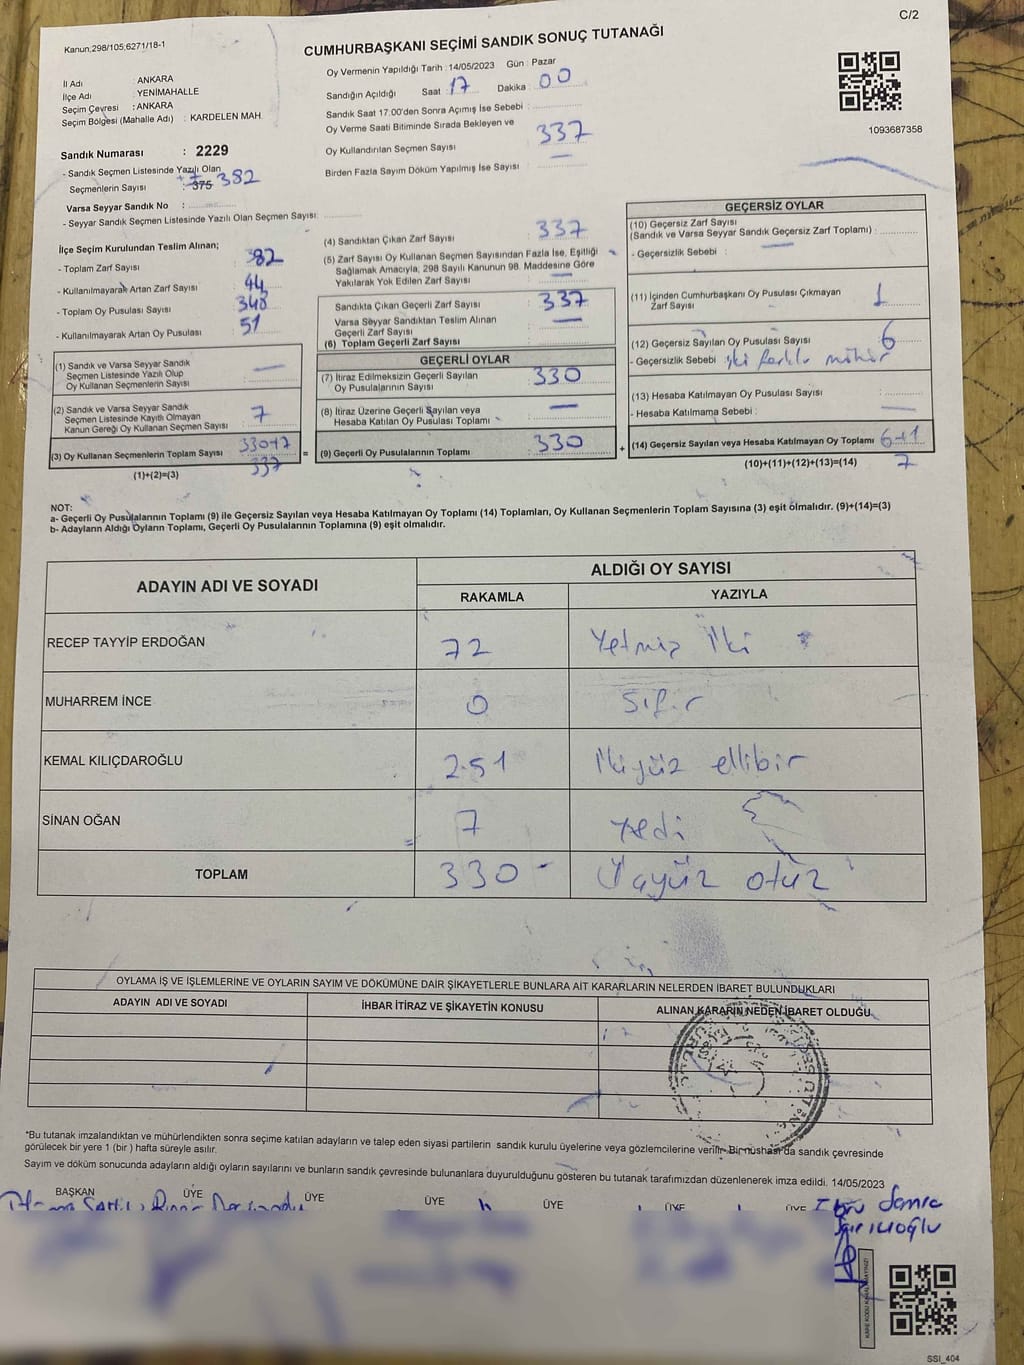 C/2
Kanun,298/105,6271/18-1
CUMHURBAŞKANI SEÇİMİ SANDIK SONUÇ TUTANAĞI
İl Adı : ANKARA
İlçe Adı : YENİMAHALLE
Seçim Çevresi : ANKARA
Seçim Bölgesi (Mahalle Adı) : KARDELEN MAH.
Oy Vermenin Yapıldığı Tarih :14/05/2023 Gün : Pazar
Sandığın Açıldığı Saat : 17 Dakika : 00
Sandık Saat 17:00'den Sonra Açımış İse Sebebi :
Oy Verme Saati Bitiminde Sırada Bekleyen ve
Oy Kullandırılan Seçmen Sayısı 337
Birden Fazla Sayım Döküm Yapılmış İse Sayısı —
1093687358
Sandık Numarası : 2229
- Sandık Seçmen Listesinde Yazılı Olan
Seçmenlerin Sayısı : 375 +7 382
Varsa Seyyar Sandık No :
- Seyyar Sandık Seçmen Listesinde Yazılı Olan Seçmen Sayısı:
İlçe Seçim Kurulundan Teslim Alınan;
- Toplam Zarf Sayısı : 382
- Kullanılmayarak Artan Zarf Sayısı : 44
- Toplam Oy Pusulası Sayısı : 348
- Kullanılmayarak Artan Oy Pusulası : 51
(1) Sandık ve Varsa Seyyar Sandık
Seçmen Listesinde Yazılı Olup
Oy Kullanan Seçmenlerin Sayısı —
(2) Sandık ve Varsa Seyyar Sandık
Seçmen Listesinde Kayıtlı Olmayan
Kanun Gereği Oy Kullanan Seçmen Sayısı 7
(3) Oy Kullanan Seçmenlerin Toplam Sayısı 330+7
337
(1)+(2)=(3)
(4) Sandıktan Çıkan Zarf Sayısı : 337
(5) Zarf Sayısı Oy Kullanan Seçmen Sayısından Fazla İse, Eşitliği
Sağlamak Amacıyla, 298 Sayılı Kanunun 98. Maddesine Göre
Yakılarak Yok Edilen Zarf Sayısı : —
Sandıkta Çıkan Geçerli Zarf Sayısı : 337
Varsa Seyyar Sandıktan Teslim Alınan
Geçerli Zarf Sayısı : —
(6) Toplam Geçerli Zarf Sayısı :
GEÇERLİ OYLAR
(7) İtiraz Edilmeksizin Geçerli Sayılan
Oy Pusulalarının Sayısı : 330
(8) İtiraz Üzerine Geçerli Sayılan veya
Hesaba Katılan Oy Pusulası Toplamı : —
= (9) Geçerli Oy Pusulalarının Toplamı : 330 +
GEÇERSİZ OYLAR
(10) Geçersiz Zarf Sayısı
(Sandık ve Varsa Seyyar Sandık Geçersiz Zarf Toplamı) :
- Geçersizlik Sebebi : —
(11) İçinden Cumhurbaşkanı Oy Pusulası Çıkmayan
Zarf Sayısı : 1
(12) Geçersiz Sayılan Oy Pusulası Sayısı : 6
- Geçersizlik Sebebi : iki farklı mühür
(13) Hesaba Katılmayan Oy Pusulası Sayısı :
- Hesaba Katılmama Sebebi : —
(14) Geçersiz Sayılan veya Hesaba Katılmayan Oy Toplamı 6+1
(10)+(11)+(12)+(13)=(14) 7
NOT:
a- Geçerli Oy Pusulalarının Toplamı (9) ile Geçersiz Sayılan veya Hesaba Katılmayan Oy Toplamı (14) Toplamları, Oy Kullanan Seçmenlerin Toplam Sayısına (3) eşit olmalıdır. (9)+(14)=(3)
b- Adayların Aldığı Oyların Toplamı, Geçerli Oy Pusulalarının Toplamına (9) eşit olmalıdır.
ADAYIN ADI VE SOYADI ALDIĞI OY SAYISI
RAKAMLA YAZIYLA
RECEP TAYYİP ERDOĞAN 72 Yetmiş İki
MUHARREM İNCE 0 Sıfır
KEMAL KILIÇDAROĞLU 251 İkiyüz ellibir
SİNAN OĞAN 7 Yedi
TOPLAM 330 Üçyüz otuz
OYLAMA İŞ VE İŞLEMLERİNE VE OYLARIN SAYIM VE DÖKÜMÜNE DAİR ŞİKAYETLERLE BUNLARA AİT KARARLARIN NELERDEN İBARET BULUNDUKLARI
ADAYIN ADI VE SOYADI İHBAR İTİRAZ VE ŞİKAYETİN KONUSU ALINAN KARARIN NEDEN İBARET OLDUĞU
*Bu tutanak imzalandıktan ve mühürlendikten sonra seçime katılan adayların ve talep eden siyasi partilerin sandık kurulu üyelerine veya gözlemcilerine verilir. Bir nüshası da sandık çevresinde
görülecek bir yere 1 (bir ) hafta süreyle asılır.
Sayım ve döküm sonucunda adayların aldığı oyların sayılarını ve bunların sandık çevresinde bulunanlara duyurulduğunu gösteren bu tutanak tarafımızdan düzenlenerek imza edildi. 14/05/2023
BAŞKAN ÜYE ÜYE ÜYE ÜYE ÜYE ÜYE
SSI_404